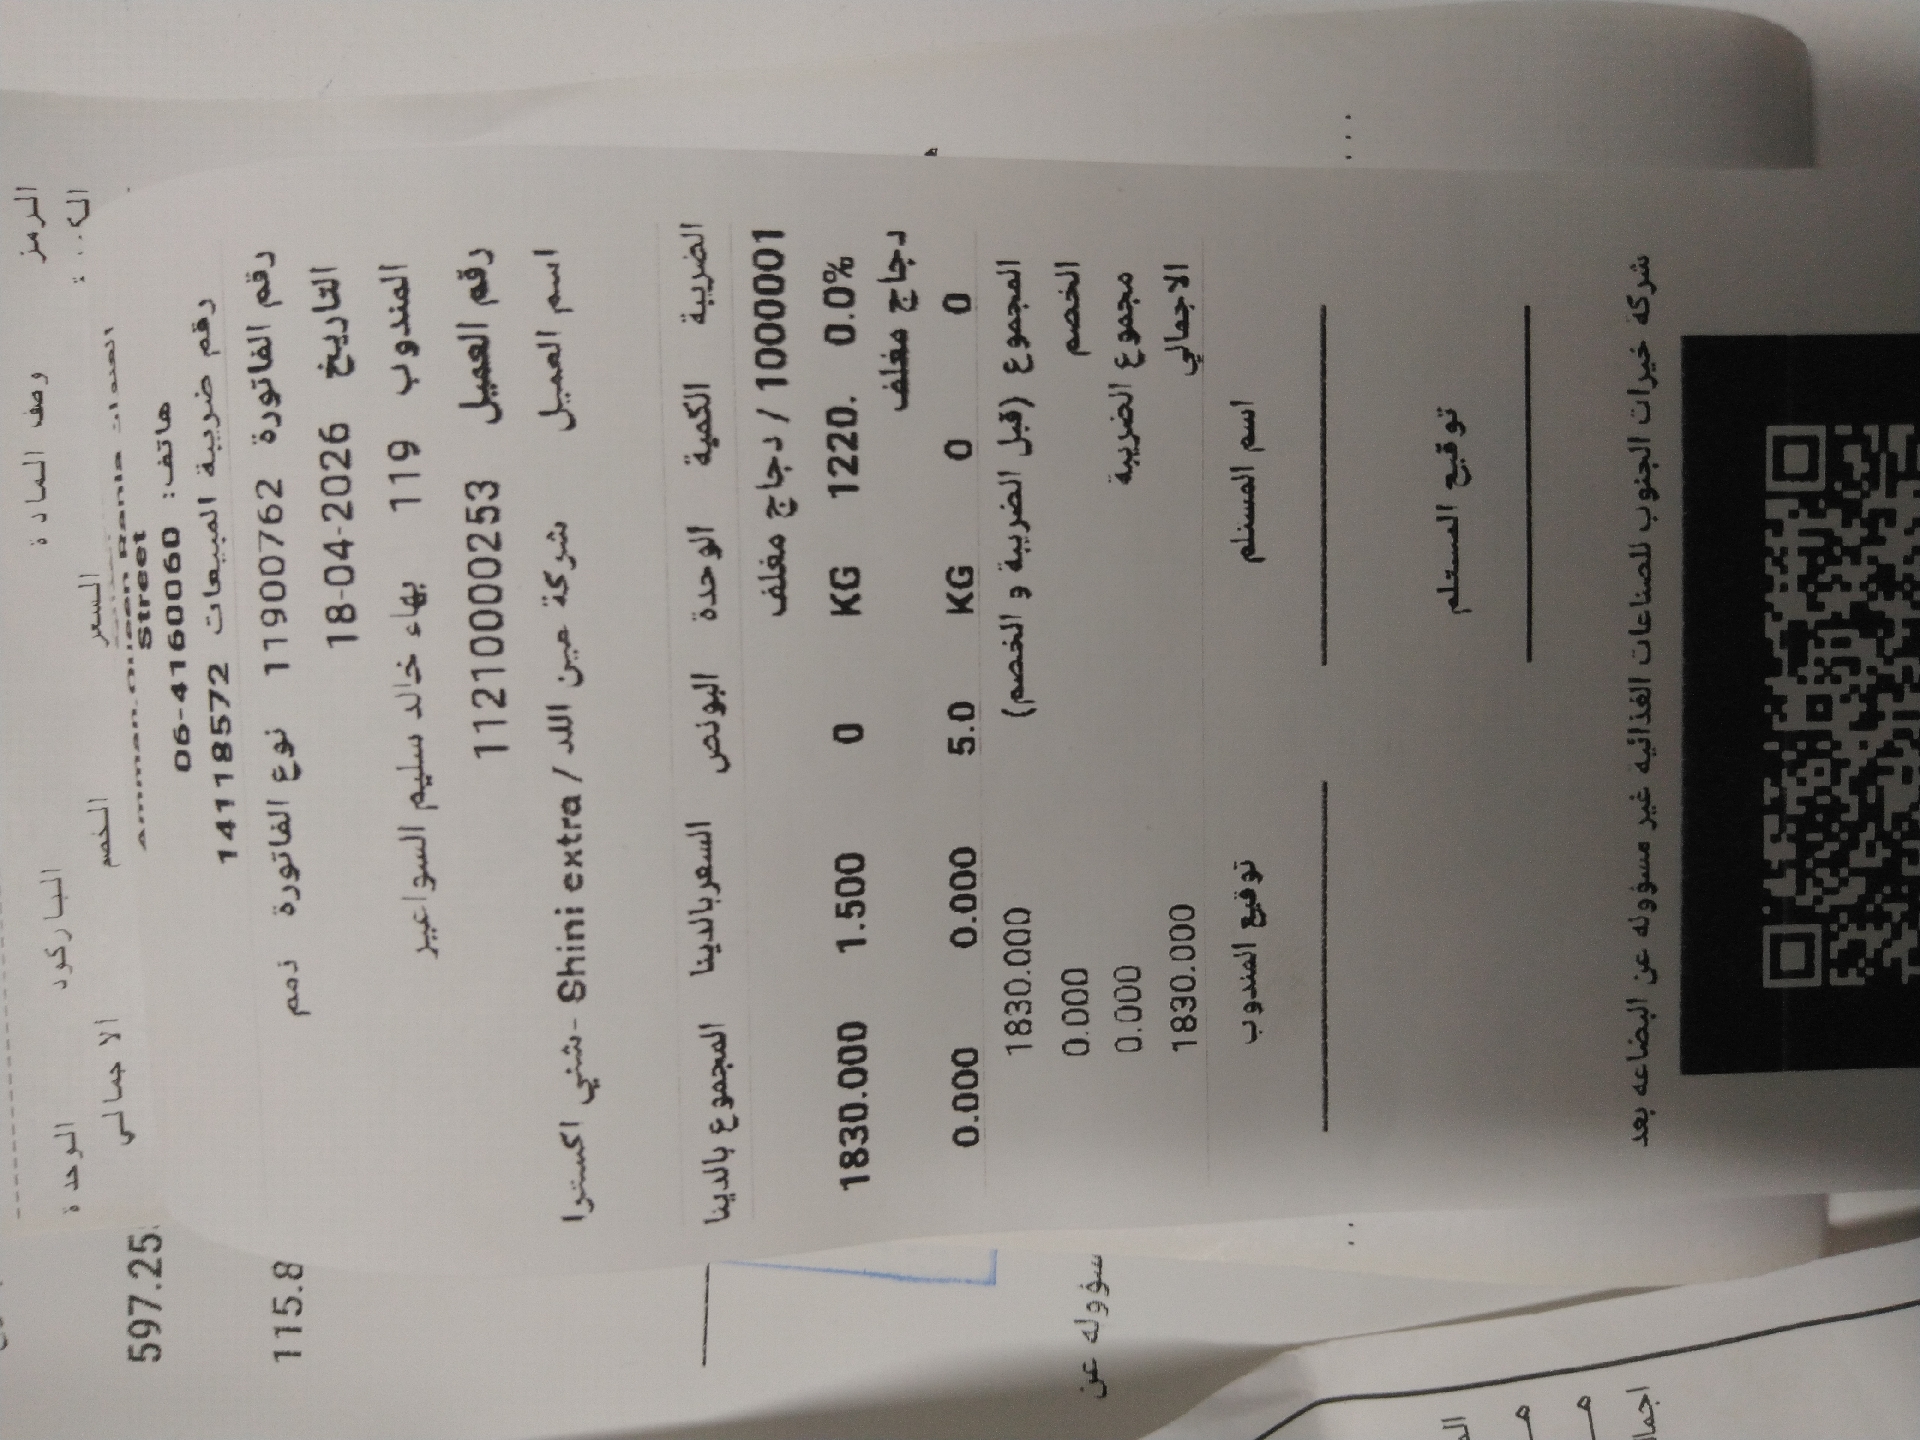 الرمز وصف المادة الباركود الوحدة
السعر الخصم الاجمالي
Street
هاتف: 06-4160060
رقم ضريبة المبيعات 14118572
رقم الفاتورة 11900762 نوع الفاتورة ذمم
التاريخ 18-04-2026
المندوب 119 بهاء خالد سليم السواعير
رقم العميل 1121000253
اسم العميل شركة مين اللد / Shini extra - شني اكسترا
الضريبة الكمية الوحدة البونص السعربالدينا المجموع بالدينا
1000001 / دجاج مغلف
0.0% 1220. KG 0 1.500 1830.000
دجاج مغلف
0 0 KG 5.0 0.000 0.000
المجموع (قبل الضريبة و الخصم) 1830.000
الخصم 0.000
مجموع الضريبة 0.000
الاجمالي 1830.000
اسم المستلم توقيع المندوب
توقيع المستلم
شركة خيرات الجنوب للصناعات الغذائية غير مسؤوله عن البضاعه بعد
597.25
115.8
سؤوله عن